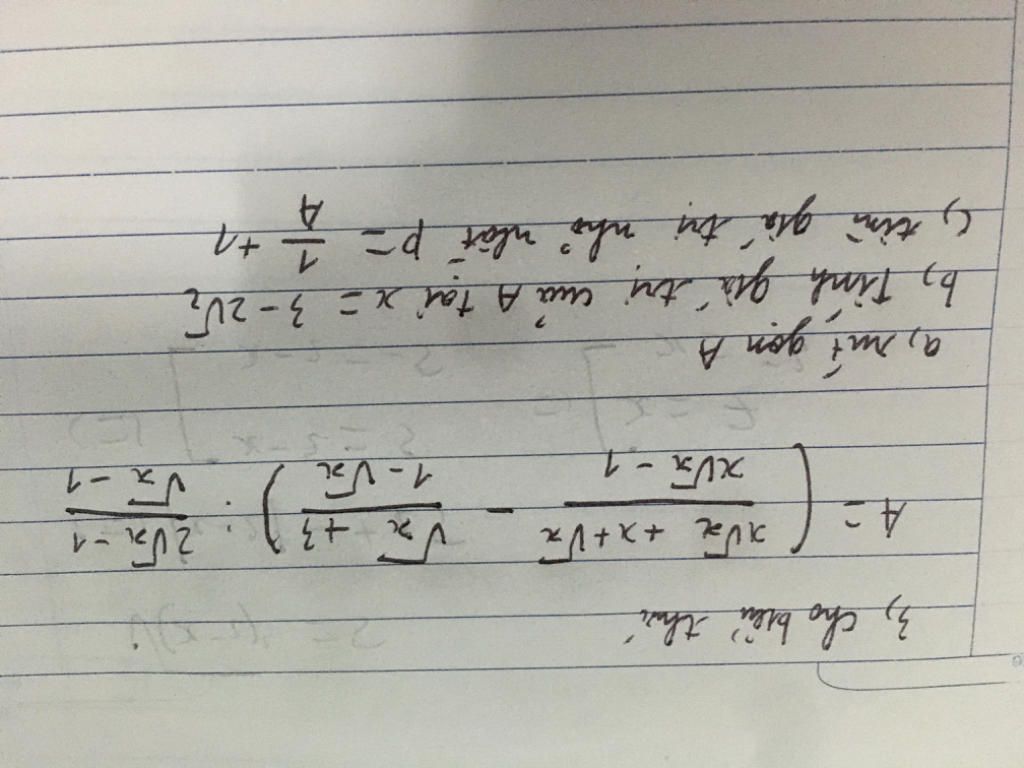 3, Cho biểu thức
A = ( (x√x + x + √x)/(x√x - 1) - (√x + 3)/(1 - √x) ) : (2√x - 1)/(√x - 1)
a, rút gọn A
b, Tính giá trị của A tại x = 3 - 2√2
c, tìm giá trị nhỏ nhất P = 1/A + 1